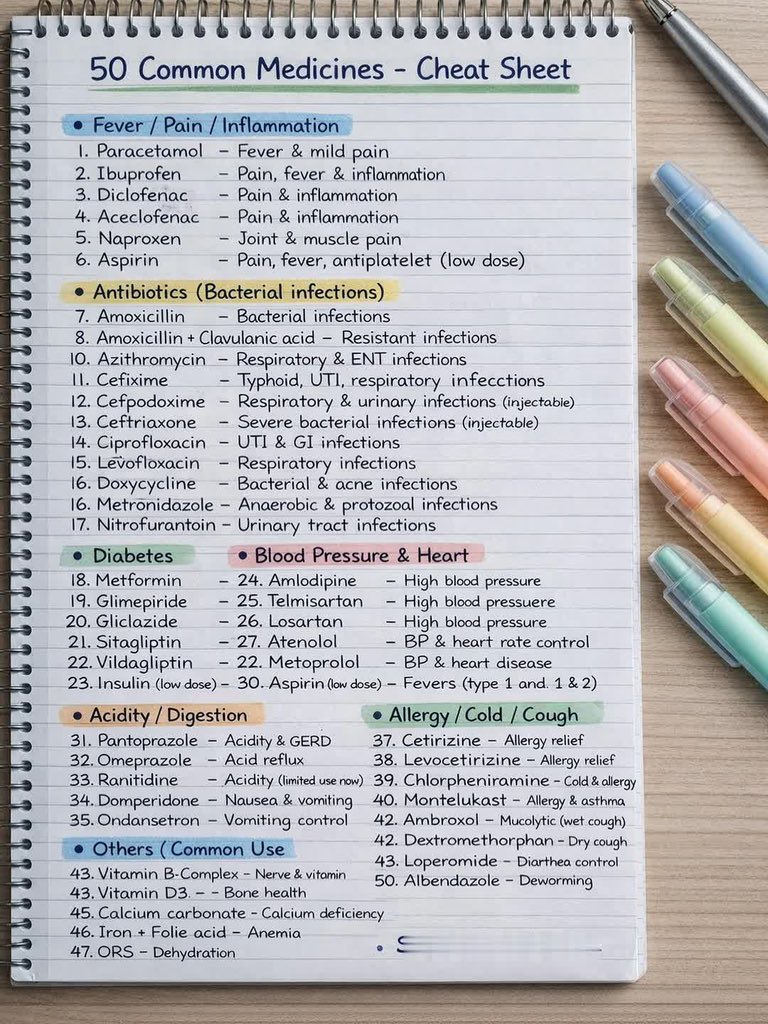 50 Common Medicines - Cheat Sheet
• Fever / Pain / Inflammation
1. Paracetamol – Fever & mild pain
2. Ibuprofen – Pain, fever & inflammation
3. Diclofenac – Pain & inflammation
4. Aceclofenac – Pain & inflammation
5. Naproxen – Joint & muscle pain
6. Aspirin – Pain, fever, antiplatelet (low dose)
• Antibiotics (Bacterial infections)
7. Amoxicillin – Bacterial infections
8. Amoxicillin + Clavulanic acid – Resistant infections
10. Azithromycin – Respiratory & ENT infections
11. Cefixime – Typhoid, UTI, respiratory infecctions
12. Cefpodoxime – Respiratory & urinary infections (injectable)
13. Ceftriaxone – Severe bacterial infections (injectable)
14. Ciprofloxacin – UTI & GI infections
15. Levofloxacin – Respiratory infections
16. Doxycycline – Bacterial & acne infections
16. Metronidazole – Anaerobic & protozoal infections
17. Nitrofurantoin – Urinary tract infections
• Diabetes
18. Metformin –
19. Glimepiride –
20. Gliclazide –
21. Sitagliptin –
22. Vildagliptin –
23. Insulin (low dose) –
• Blood Pressure & Heart
24. Amlodipine – High blood pressure
25. Telmisartan – High blood pressuere
26. Losartan – High blood pressure
27. Atenolol – BP & heart rate control
22. Metoprolol – BP & heart disease
30. Aspirin (low dose) – Fevers (type 1 and. 1 & 2)
• Acidity / Digestion
31. Pantoprazole – Acidity & GERD
32. Omeprazole – Acid reflux
33. Ranitidine – Acidity (limited use now)
34. Domperidone – Nausea & vomiting
35. Ondansetron – Vomiting control
• Others ( Common Use
43. Vitamin B-Complex – Nerve & vitamin
43. Vitamin D3. – – Bone health
45. Calcium carbonate – Calcium deficiency
46. Iron + Folie acid – Anemia
47. ORS – Dehydration
• Allergy / Cold / Cough
37. Cetirizine – Allergy relief
38. Levocetirizine – Allergy relief
39. Chlorpheniramine – Cold & allergy
40. Montelukast – Allergy & asthma
42. Ambroxol – Mucolytic (wet cough)
42. Dextromethorphan – Dry cough
43. Loperomide – Diarthea control
50. Albendazole – Deworming